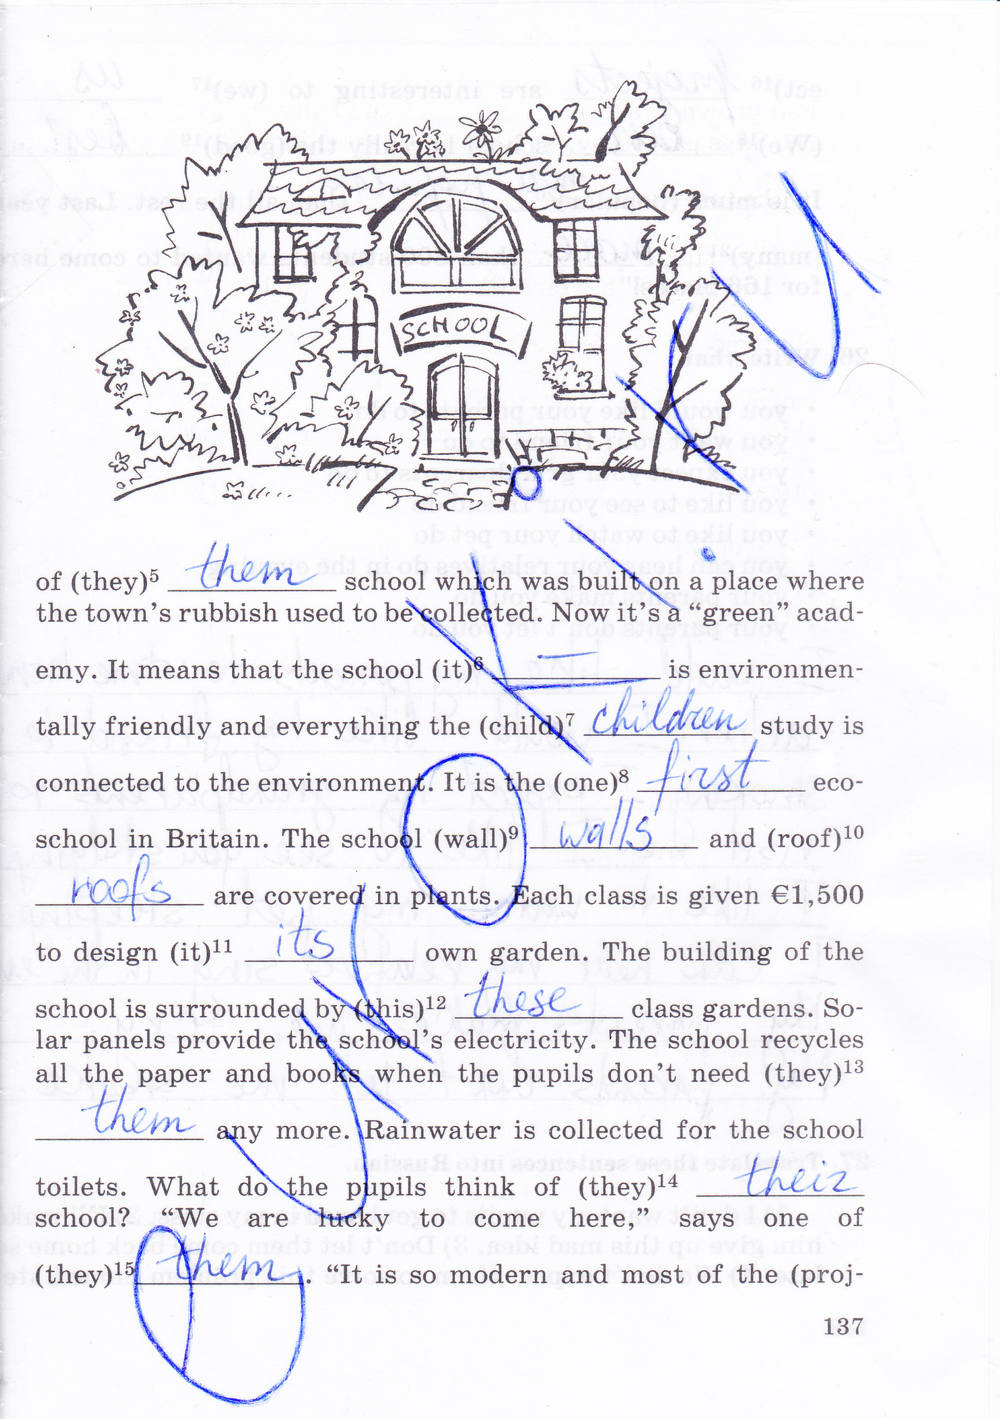 SCHOOL
of (they)⁵ them school which was built on a place where
the town's rubbish used to be collected. Now it's a "green" acad-
emy. It means that the school (it)⁶ is environmen-
tally friendly and everything the (child)⁷ children study is
connected to the environment. It is the (one)⁸ first eco-
school in Britain. The school (wall)⁹ walls and (roof)¹⁰
roofs are covered in plants. Each class is given €1,500
to design (it)¹¹ its own garden. The building of the
school is surrounded by (this)¹² these class gardens. So-
lar panels provide the school's electricity. The school recycles
all the paper and books when the pupils don't need (they)¹³
them any more. Rainwater is collected for the school
toilets. What do the pupils think of (they)¹⁴ their
school? "We are lucky to come here," says one of
(they)¹⁵ them. "It is so modern and most of the (proj-
137